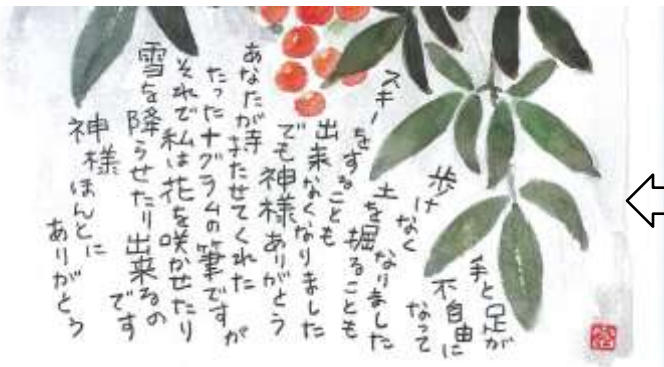 手と足が
不自由に
なって
歩け
なく
なりました
土を掘ることも
スキーをすることも
出来なくなりました
でも神様ありがとう
あなたが持たせてくれた
たった十グラムの筆ですが
それで私は花を咲かせたり
雪を降らせたり出来るの
です
神様
ほんとに
ありがとう